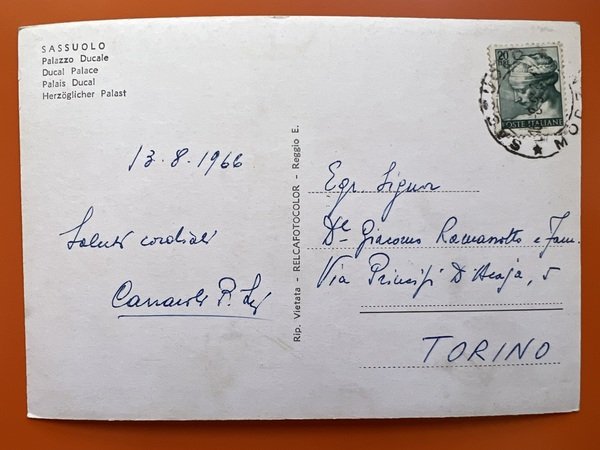 SASSUOLO
Palazzo Ducale
Ducal Palace
Palais Ducal
Herzöglicher Palast
13.8.1966
Saluti cordiali
P.
Rip. Vietata - RELCAFOTOCOLOR - Reggio E.
20
POSTE ITALIANE
Egr. Signor
Giacomo Romanotto e Fam.
Via Principi D'Acaja, 5
TORINO